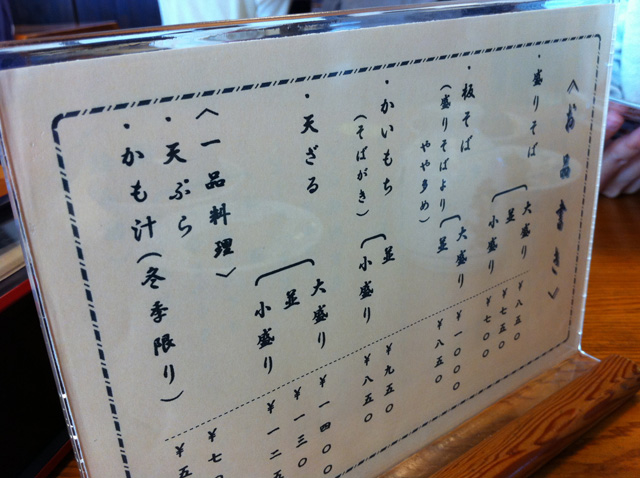 《お品書き》
・盛りそば
大盛り ¥八五〇
並 ¥七五〇
小盛り ¥七〇〇
・板そば
(盛りそばより
やや多め)
大盛り ¥一〇〇〇
並 ¥八五〇
・かいもち
(そばがき)
並 ¥九五〇
小盛り ¥八五〇
・天ざる
大盛り ¥一四〇〇
並 ¥一三〇〇
小盛り ¥一二五
〈一品料理〉
・天ぷら ¥七〇
・かも汁(冬季限り) ¥五